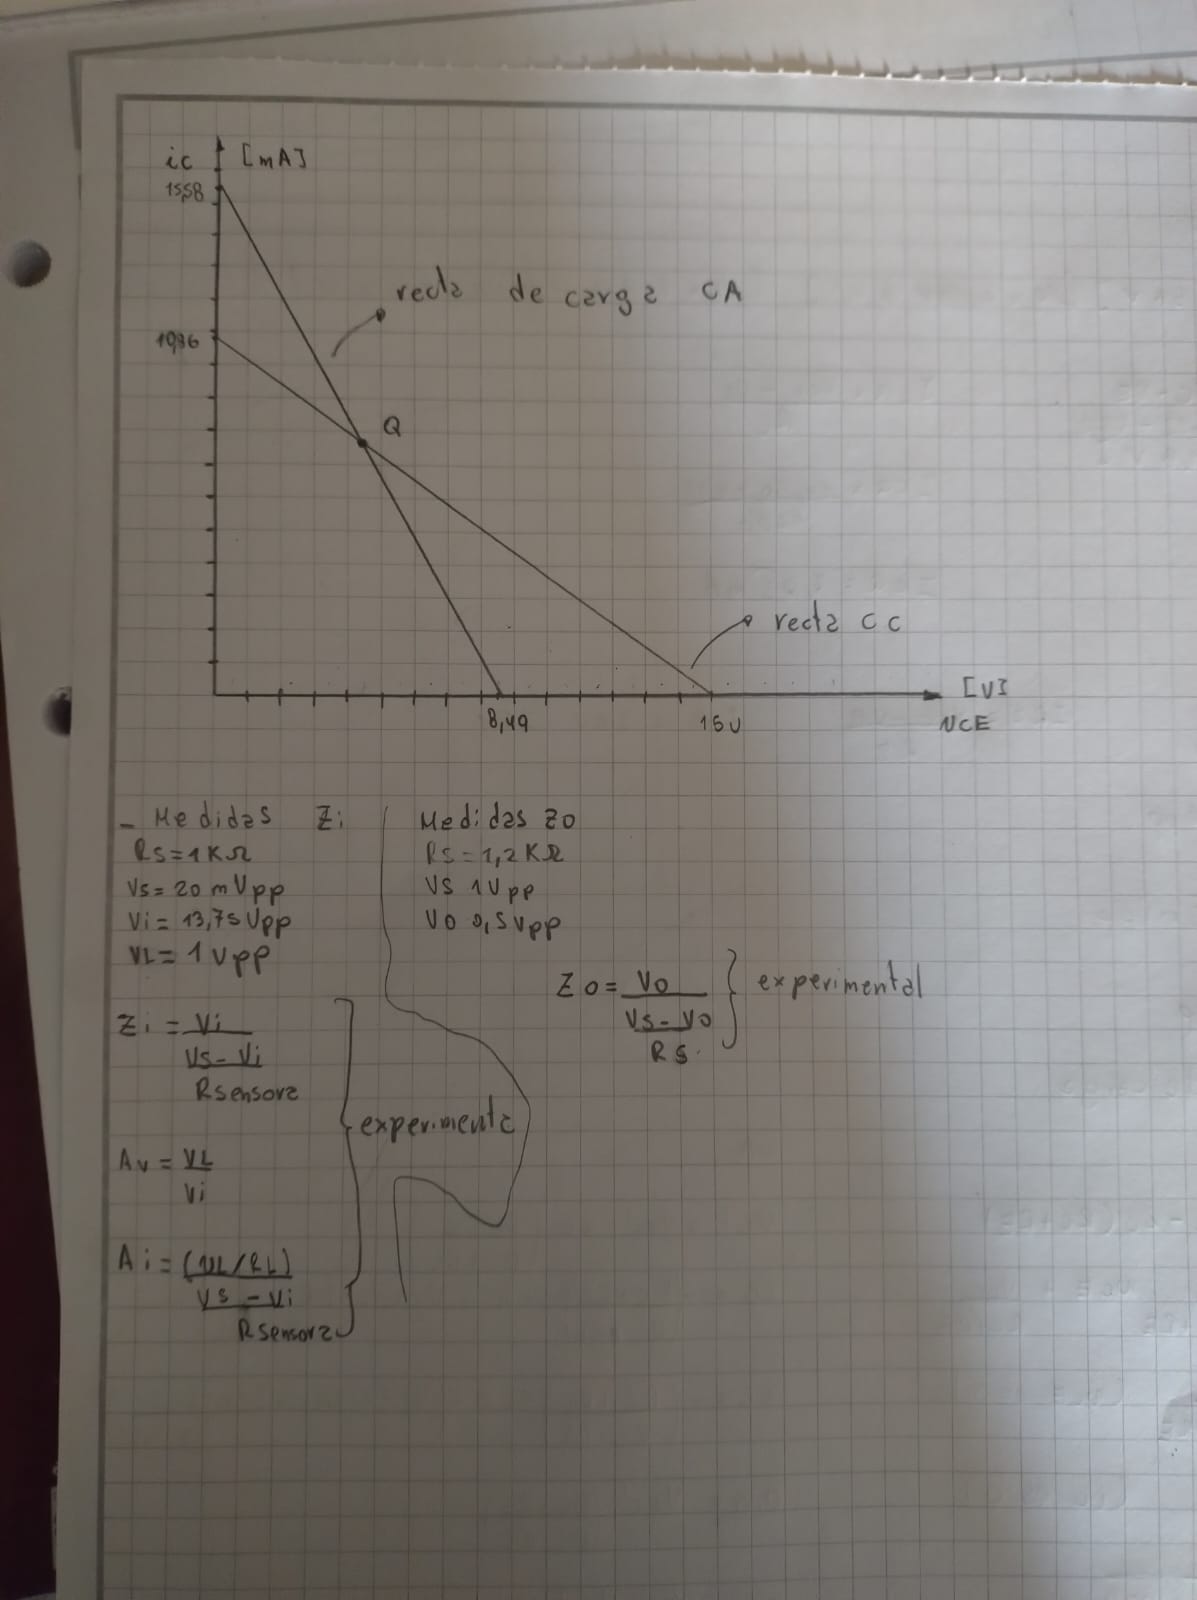 ic [mA]
15,58
recta de carga CA
10,36
Q
recta CC
[V]
8,49 15V VCE
- Medidas Zi
RS=1KΩ
VS=20mVpp
Vi=13,75Vpp
VL=1Vpp
Zi=Vi
VS-Vi
Rsensora
Av=VL
Vi
Ai=(VL/RL)
VS-Vi
Rsensora
experimenta
Medidas Zo
RS=1,2KΩ
VS 1Vpp
VO 0,5Vpp
Zo=Vo
VS-VO
RS.
experimental